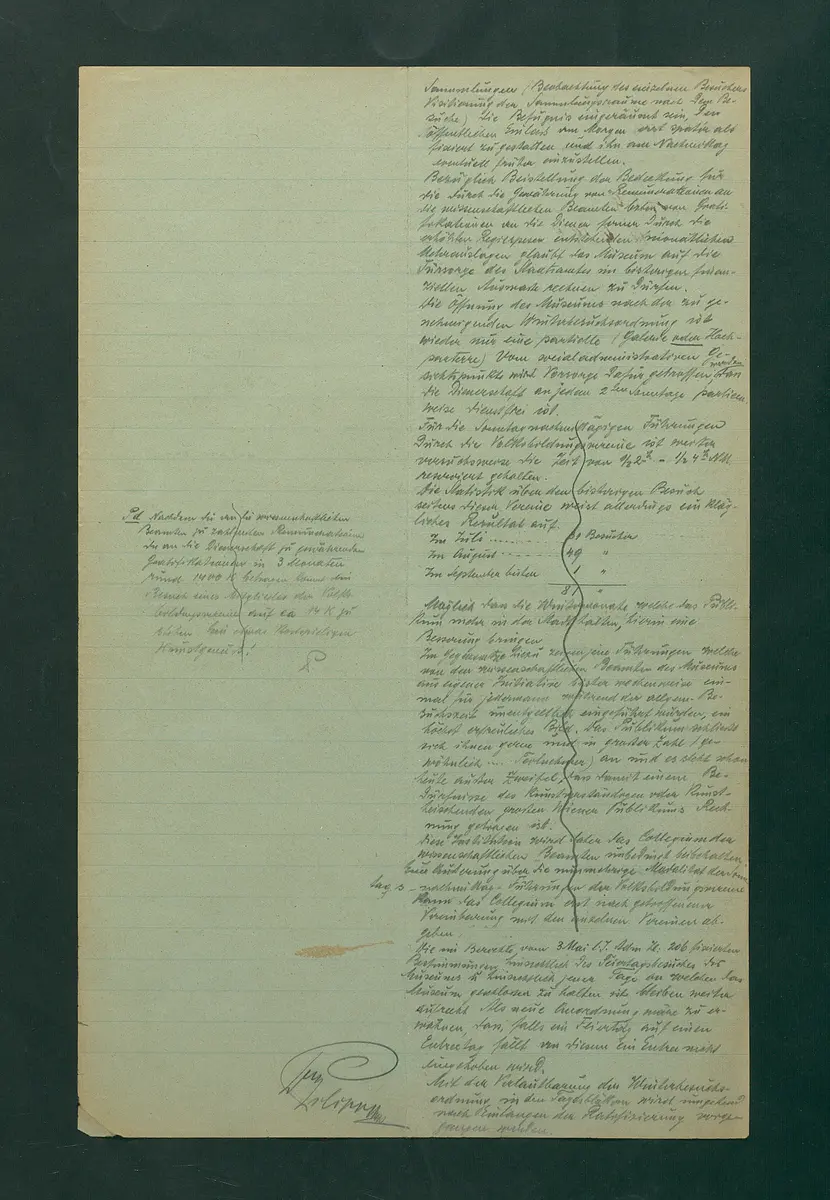 Sammlungen (Beobachtung des einzelnen Besuchers
Visitierung der Sammlungsräume nach dem Be-
suche) die Befugnis eingeräumt sein, den
öffentlichen Einlass am Morgen erst später als
fixiert zu gestatten und ihn am Nachmittag
eventuell früher einzustellen.
Bezüglich Beistellung der Bedeckung für
die durch die Gewährung von Remunerationen an
die wissenschaftlichen Beamten von Grati-
fikationen an die Diener ferner durch die
erhöhten Regiespesen entstehenden monatlichen
Mehrauslagen glaubt das Museum auf die
Fürsorge des Staatsamtes im bisherigen finan-
ziellen Ausmasse rechnen zu dürfen.
Die Öffnung des Museums nach der zu ge-
nehmigenden Winterbesuchsordnung ist
wieder nur eine partielle (Galerie oder Hoch-
parterre) Vom administrativen Ge-
sichtspunkte wird Vorsorge dafür getroffen werden, dass
die Dienerschaft an jedem 2ten Sonntage partien
weise dienstfrei ist.
Für die Sonntagnachmittägigen Führungen
durch die Volksbildungsvereine ist weiter
versuchsweise die Zeit von 1/2 2h – 1/2 4h NM.
reserviert gehalten.
Die Statistik über den bisherigen Besuch
seitens dieser Vereine weist allerdings ein kläg-
liches Resultat auf.
Im Juli ........ 31 Besucher
Im August ....... 49 "
Im September bisher 1 "
81 "
Möglich dass die Wintermonate welche das Publi-
kum mehr in der Stadt halten, hierin eine
Besserung bringen.
Im Gegensatze hiezu zeigen jene Führungen welche
von den wissenschaftlichen Beamten des Museums
aus eigener Initiative bisher wochenweise ein-
mal für jedermann während der allgem. Be-
suchszeit unentgeltlich eingeführt wurden, ein
höchst erfreuliches Bild. Das Publikum schliesst
sich ihnen gerne und in grosser Zahl (ge-
wöhnlich .... Teilnehmer) an und es steht schon
heute ausser Zweifel, dass damit einem Be-
dürfnisse des kunstverständigen oder Kunst-
heischenden grossen Wiener Publikums Rech-
nung getragen ist.
Diese Institution wird daher das Collegium der
wissenschaftlichen Beamten unbedingt beibehalten.
Eine Äusserung über die nunmehrige Modalität der Sonn
tags-nachmittags-Führungen der Volksbildungsvereine
kann das Collegium erst nach getroffener
Vereinbarung mit den einzelnen Vereinen ab-
geben.
Die im Berichte vom 3 Mai l.J. Adm. Zl. 206 fixierten
Bestimmungen hinsichtlich des Feiertagsbesuches des
Museums u hinsichtlich jener Tage an welchen das
Museum geschlossen zu halten ist bleiben weiter
aufrecht. Als neue Anordnung wäre zu er-
wähnen, dass, falls ein Feiertag auf einen
Entreetag fällt an diesem ein Entree nicht
eingehoben wird.
Mit der Verlautbarung der Winterbesuchs-
ordnung in den Tagesblättern wird umgehend
nach Einlangen der Ratifizierung vorge-
gangen werden.
Pd Nachdem die an die wissenschaftlichen
Beamten zu zahlenden Remunerationen
die an die Dienerschaft zu gewährenden
Gratifikationen in 3 Monaten
rund 1400 K betragen käme der
Besuch eines Mitgliedes der Volks-
bildungsvereine auf ca 14 K zu
stehen
Kunstgenuss!